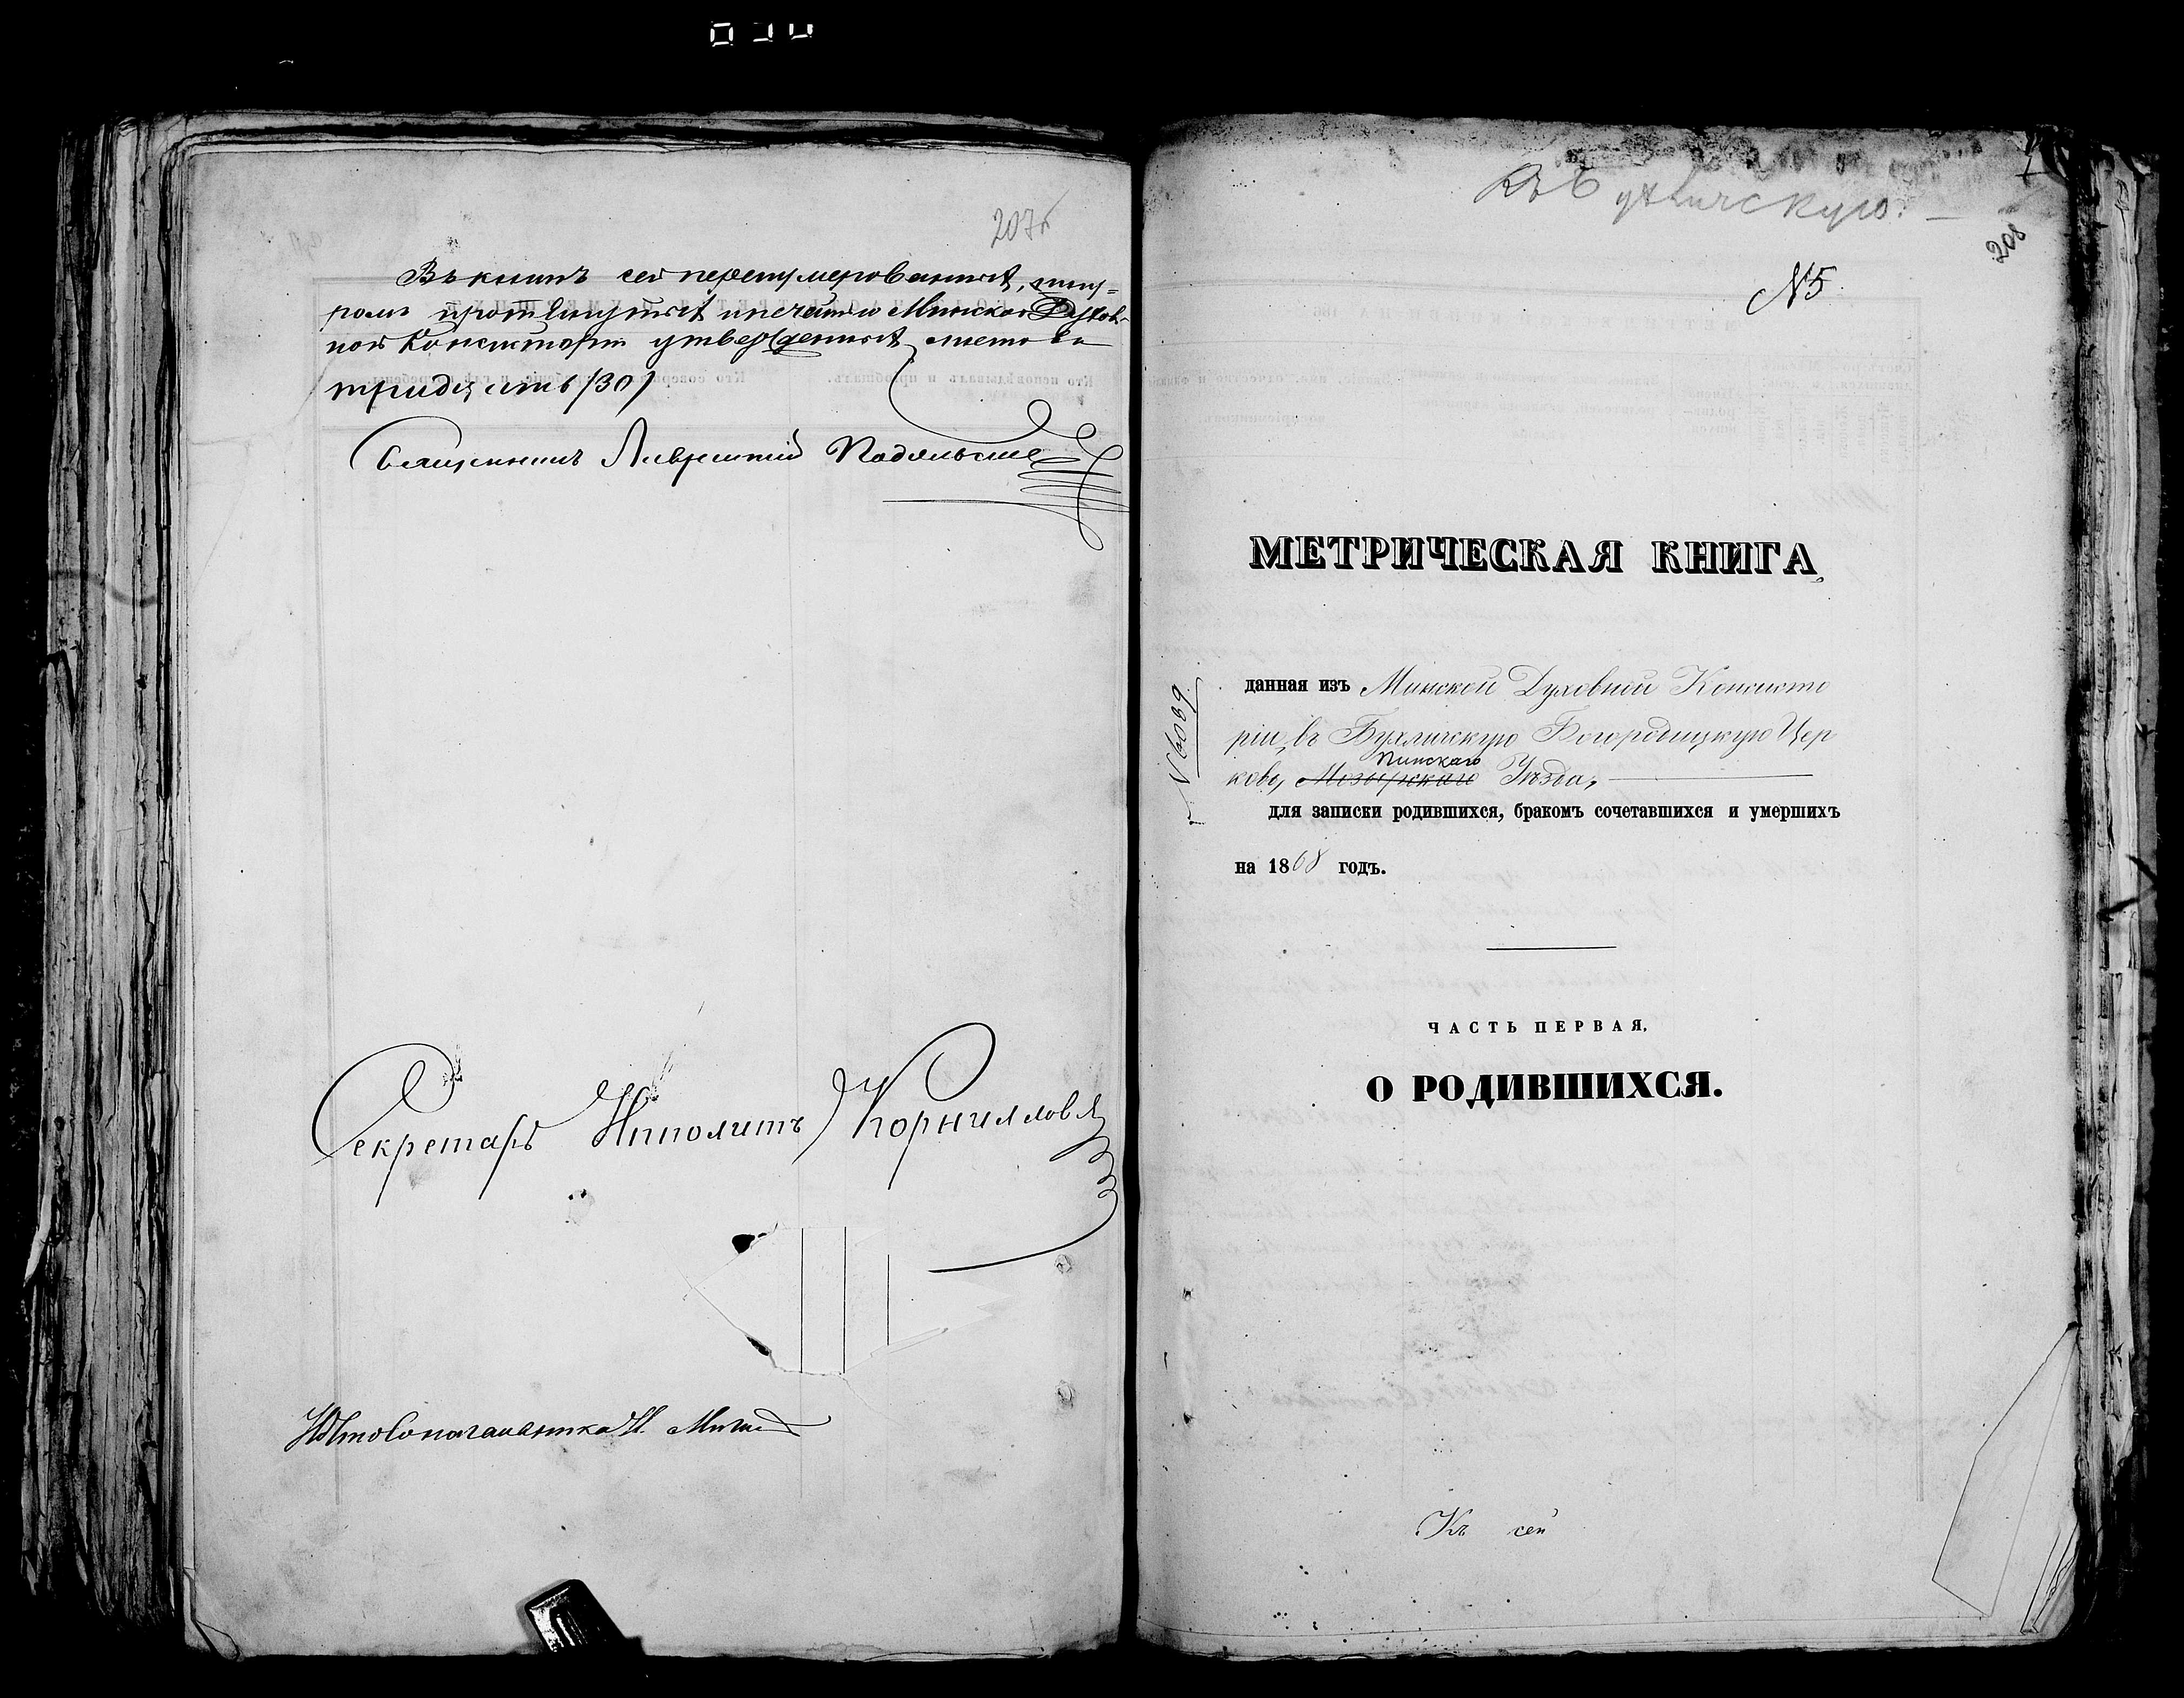 207б
Въ книгѣ сей перенумерованныхъ, шну-
ромъ протянутыхъ и печатью Минской Духов-
ной Консисторіи утвержденныхъ листовъ
тридцать /30/
Священникъ Лаврентій Подольскій
Секретарь Ипполитъ Корниловъ
Къ сей
N5
208
МЕТРИЧЕСКАЯ КНИГА,
N 6089
данная изъ Минской Духовной Консисто
ріи, въ Бухличскую Богородицкую Цер
Пинскаго
ковь, Мозырскаго Уѣзда,
для записки родившихся, бракомъ сочетавшихся и умершихъ
на 1868 годъ.
ЧАСТЬ ПЕРВАЯ.
О РОДИВШИХСЯ.